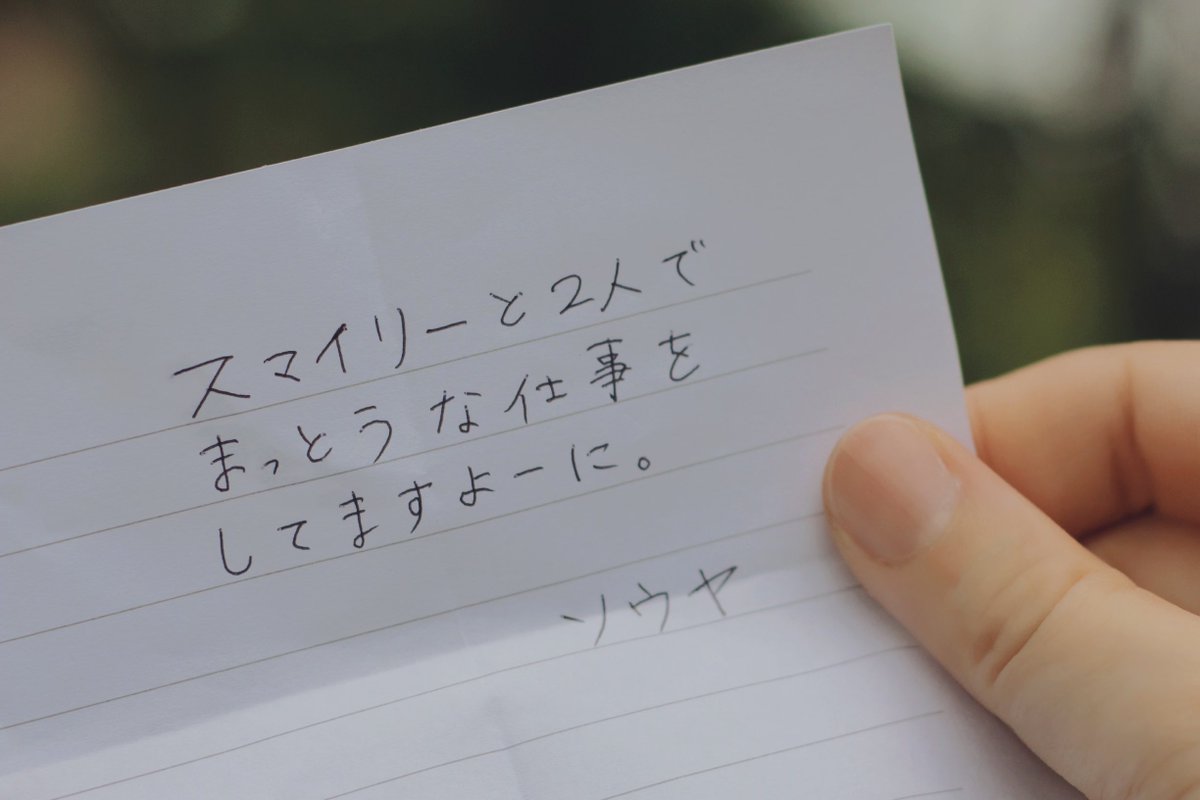 スマイリーと2人で
まっとうな仕事を
してますよーに。
ソウヤ